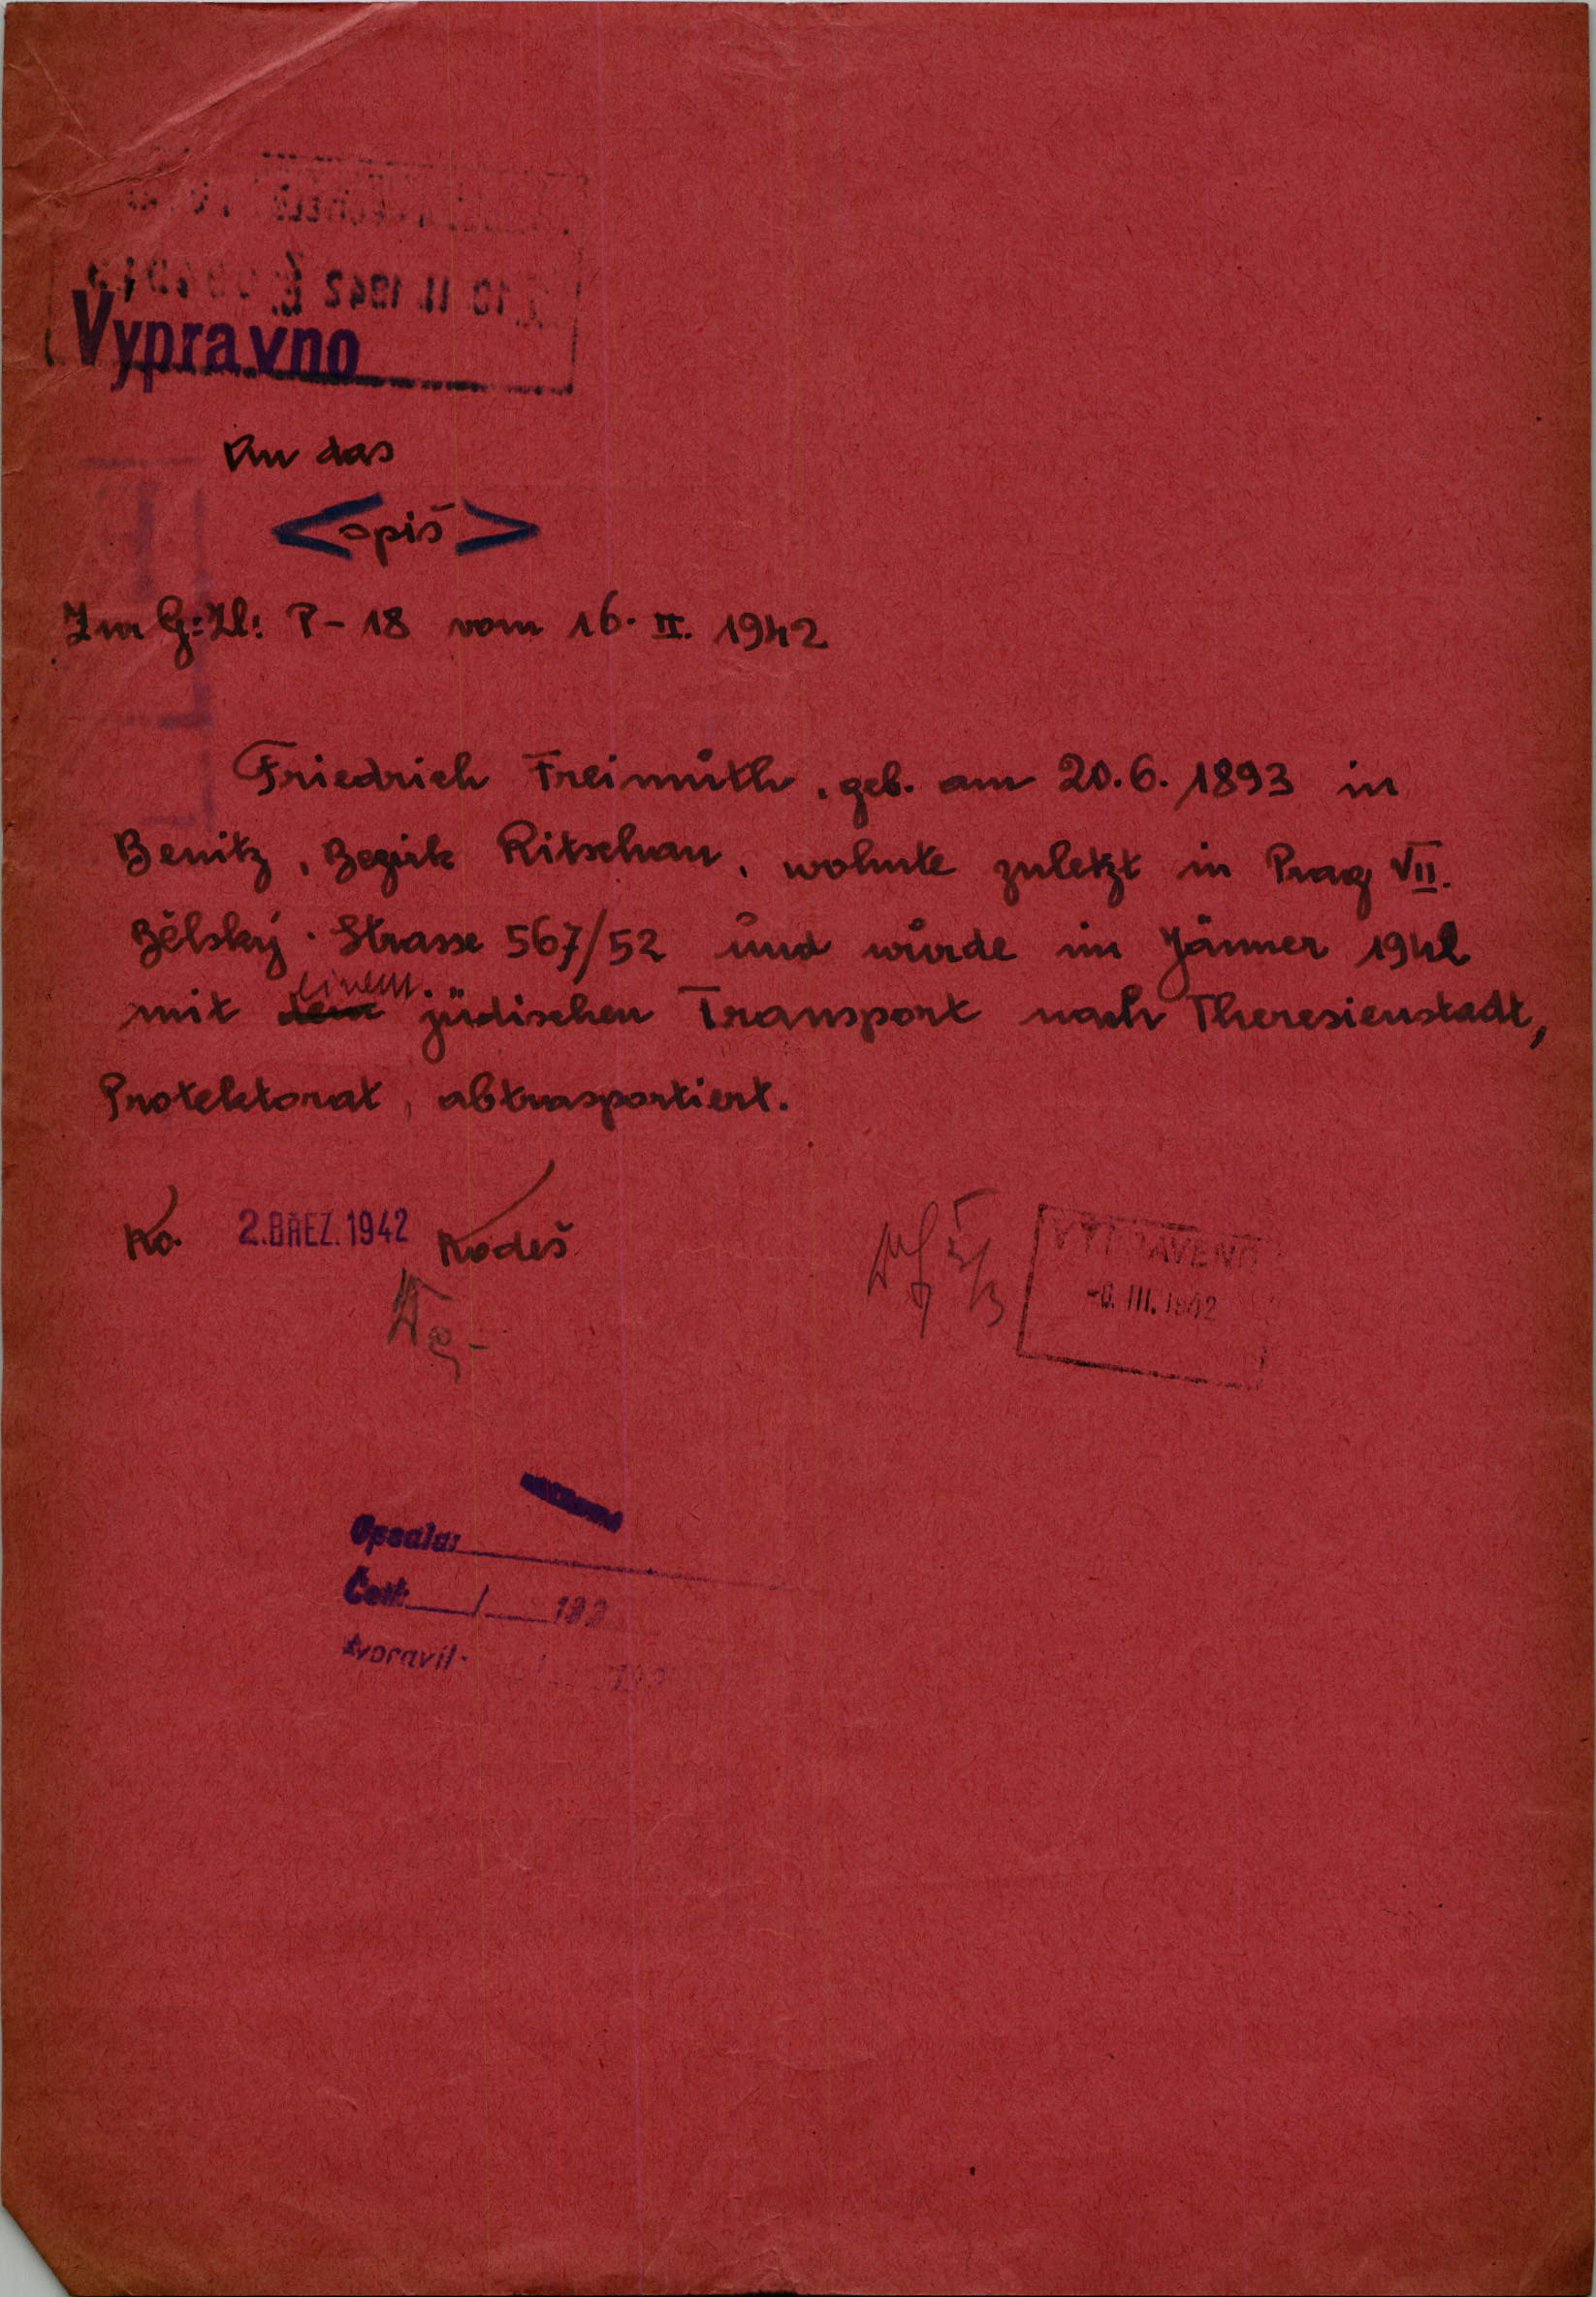 Vypravno
An das
<opis>
Zur G:Zl: P-18 vom 16. II. 1942
Friedrich Freimuth, geb. am 20.6. 1893 in
Benitz, Bezirk Ritschan, wohnte zuletzt in Prag VII.
Bělský-Strasse 567/52 und wurde im Jänner 1942
einem
mit dem jüdischen Transport nach Theresienstadt,
Protektorat, abtrasportiert.
Ko. 2. BŘEZ. 1942 Kodeš
VYPRAVENO
-6. III. 1942
Opsala:
Četl: / 193